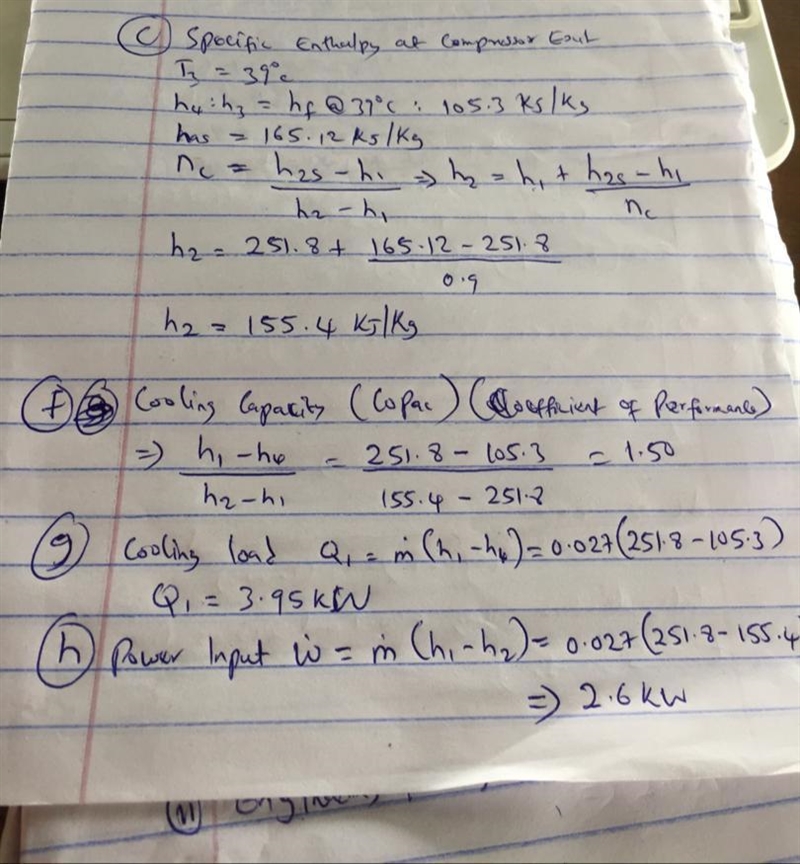 (c) Specific Enthalpy at Compressor Exit
T3 = 39°c
h4 : h3 = hf @ 39°C : 105.3 KJ/Kg
has = 165.12 KJ/Kg
nc = (h2s - h1)/(h2 - h1) ⇒ h2 = h1 + (h2s - h1)/nc
h2 = 251.8 + (165.12 - 251.8)/0.9
h2 = 155.4 KJ/Kg
(f) Cooling Capacity (Copac) (Coefficient of Performance)
⇒ (h1 - h4)/(h2 - h1) = (251.8 - 105.3)/(155.4 - 251.8) = 1.50
(g) Cooling load Q1 = ṁ(h1 - h4) = 0.027(251.8 - 105.3)
Q1 = 3.95 KW
(h) Power Input ẇ = ṁ (h1 - h2) = 0.027(251.8 - 155.4)
⇒ 2.6 KW